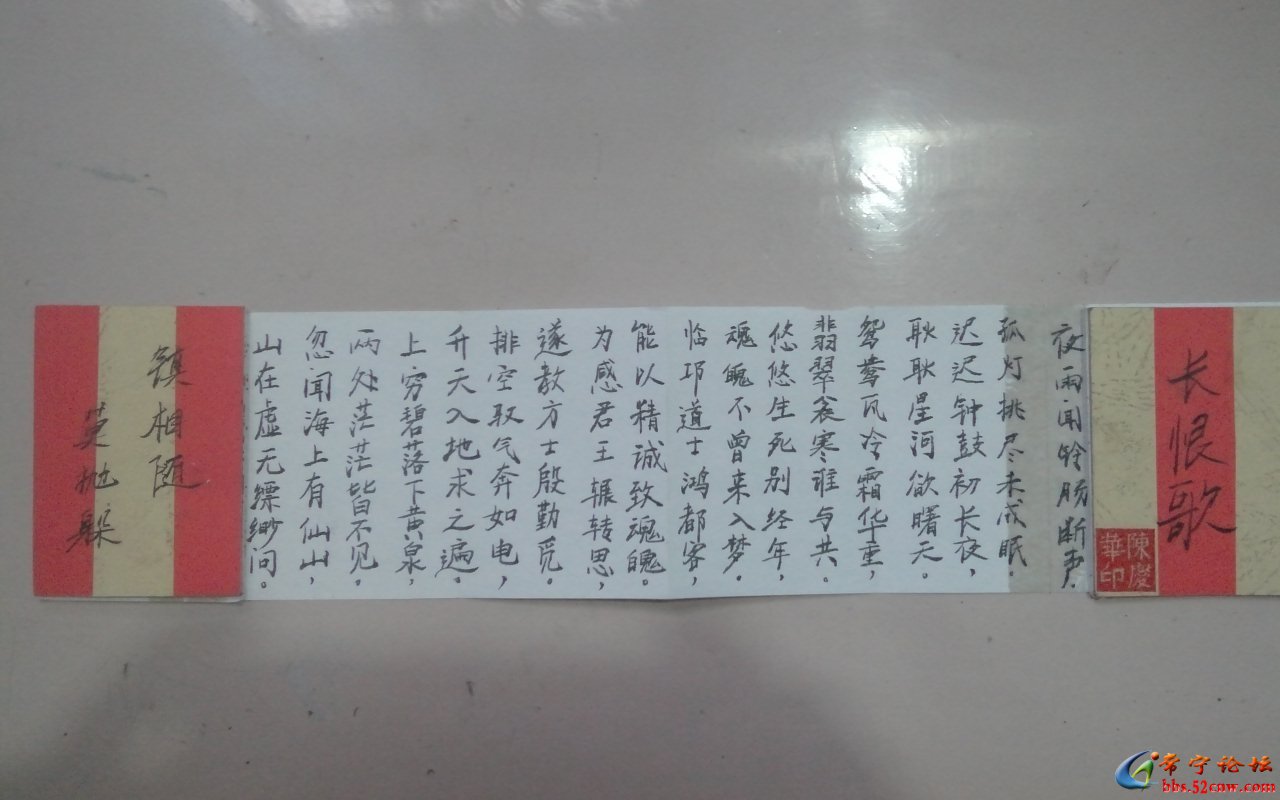 长恨歌
陳慶
華印
夜雨闻铃肠断声.
孤灯挑尽未成眠.
迟迟钟鼓初长夜,
耿耿星河欲曙天.
鸳鸯瓦冷霜华重,
翡翠衾寒谁与共.
悠悠生死别经年,
魂魄不曾来入梦.
临邛道士鸿都客,
能以精诚致魂魄。
为感君王辗转思,
遂教方士殷勤觅。
排空驭气奔如电,
升天入地求之遍。
上穷碧落下黄泉,
两处茫茫皆不见.
忽闻海上有仙山,
山在虚无缥缈间。
镇相随
莫抛躲
常宁论坛
bbs.52cnw.com